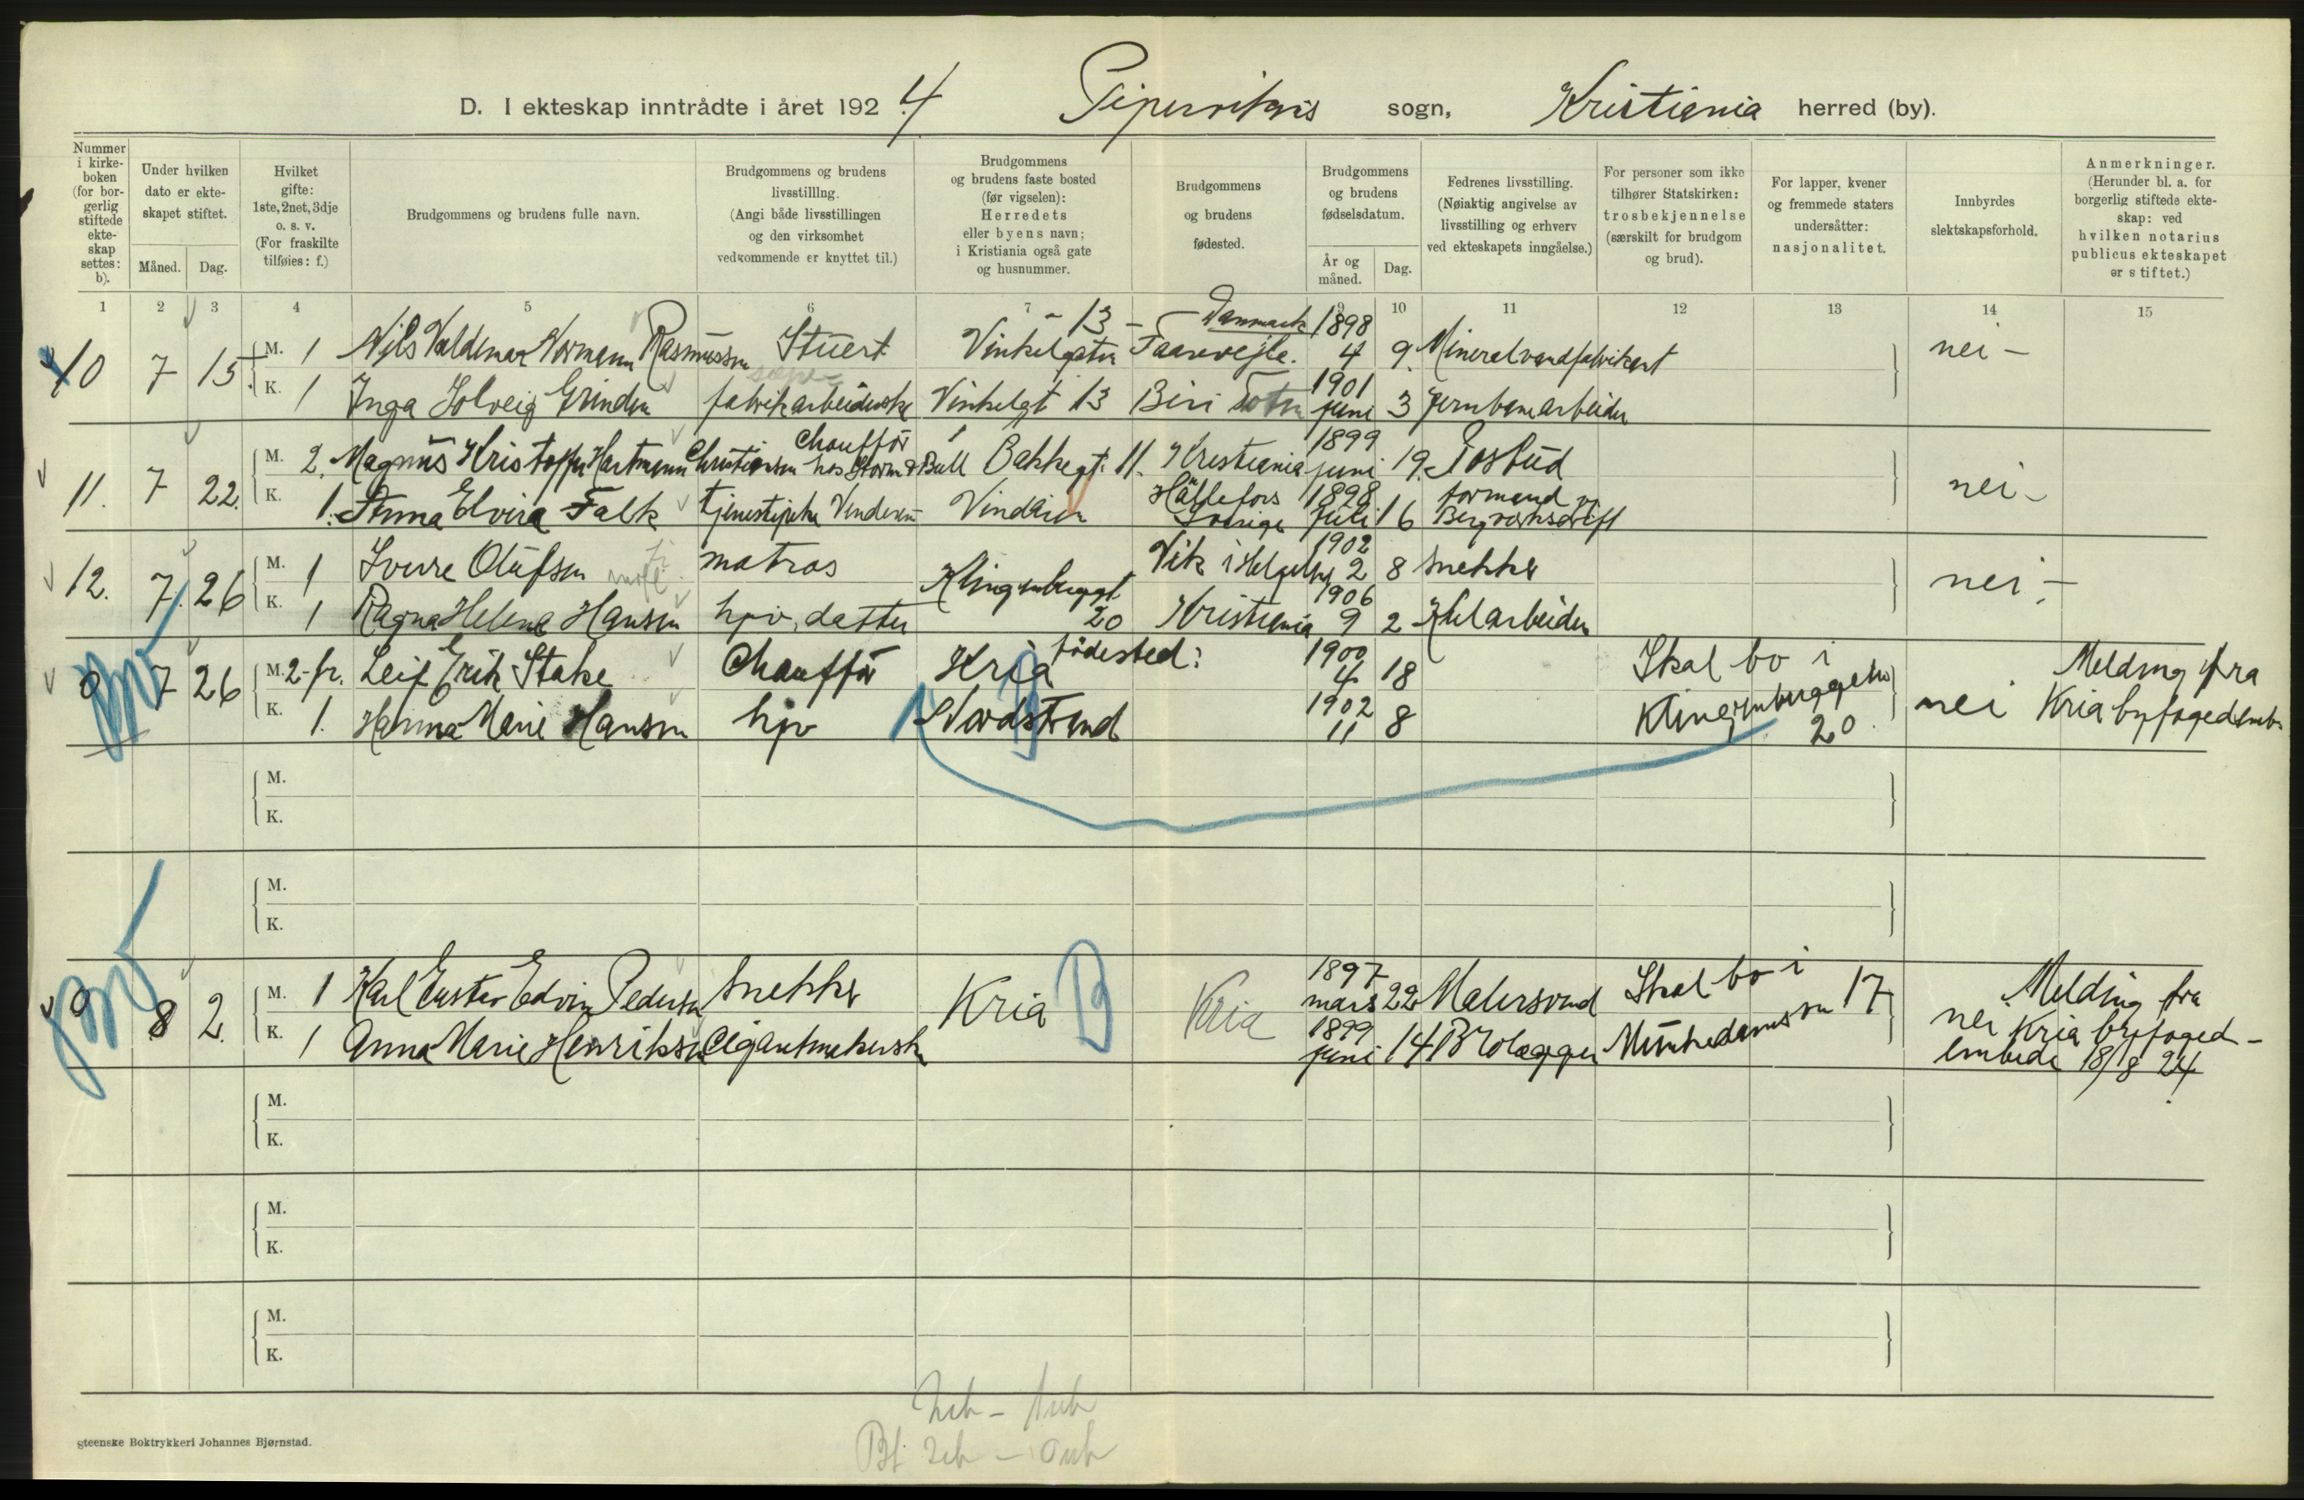 D. I ekteskap inntrådte i året 1924 Pipervikens sogn, Kristiania herred (by).
Nummer i kirke-boken (for bor-gerlig stiftede ekte-skap settes: b).
Under hvilken dato er ekte-skapet stiftet.
Måned. Dag.
Hvilket gifte: 1ste, 2net, 3dje o. s. v. (For fraskilte tilføies: f.)
Brudgommens og brudens fulle navn.
Brudgommens og brudens livsstilling. (Angi både livsstillingen og den virksomhet vedkommende er knyttet til.)
Brudgommens og brudens faste bosted (før vigselen): Herredets eller byens navn; i Kristiania også gate og husnummer.
Brudgommens og brudens fødested.
Brudgommens og brudens fødselsdatum.
År og måned. Dag.
Fedrenes livsstilling. (Nøiaktig angivelse av livsstilling og erhverv ved ekteskapets inngåelse.)
For personer som ikke tilhører Statskirken: trosbekjennelse (særskilt for brudgom og brud).
For lapper, kvener og fremmede staters undersåtter: nasjonalitet.
Innbyrdes slektskapsforhold.
Anmerkninger. (Herunder bl. a. for borgerlig stiftede ekte-skap: ved hvilken notarius publicus ekteskapet er stiftet.)
1 2 3 4 5 6 7 9 10 11 12 13 14 15
10 7 15 M. 1 Nils Valdemar Normann Rasmussen Stuert Vinkelgaten - 13 - Danmark Faarevejle. 1898 4 9. Mineralvandfabrikant nei -
K. 1 Inga Solveig Grinden fabrikarbeiderske Vinkelgt 13 Biri Toten 1901 juni 3 Jernbanearbeider
11. 7 22. M. 2. Magnus Kristoffer Hartmann Christiansen Chauffør hos Storm & Bull Bakkegt. 11. Kristiania 1899 juni 19. Fosbud nei -
K. 1. Anna Elvira Falk tjenestepike Vinderen Hällefors Sverige 1898 Juli 16 formand v. Bergverksdrift
12. 7. 26 M. 1 Sverre Olufsen matros Klingenbergt 20 Vik i Helgeland 1902 2 8 snekker nei. -
K. 1 Ragna Helene Hansen hjv. datter Kristiania 1906 9 2 Kularbeider
7 26 M. 2-fr. Leif Erik Stake Chauffør Kria fødested: 1900 4 18 Skal bo i Klingenberggaten 20 nei Melding fra Kria byfogedemb.
K. 1. Hanna Marie Hansen hjv Nordstrand 1902 11 8
M.
K.
M.
K.
8 2. M. 1 Karl Gustav Edvin Pedersen Snekker Kria B Kria 1897 mars 22 Malersvend Skal bo i Munkedamsvn 17 nei Melding fra Kria byfoged-embede 18/8 24.
K. 1 Anna Marie Henriksen Cigarmakerske 1899 juni 14 Brolægger
M.
K.
M.
K.
M.
K.
gteenske Boktrykkeri Johannes Bjørnstad.